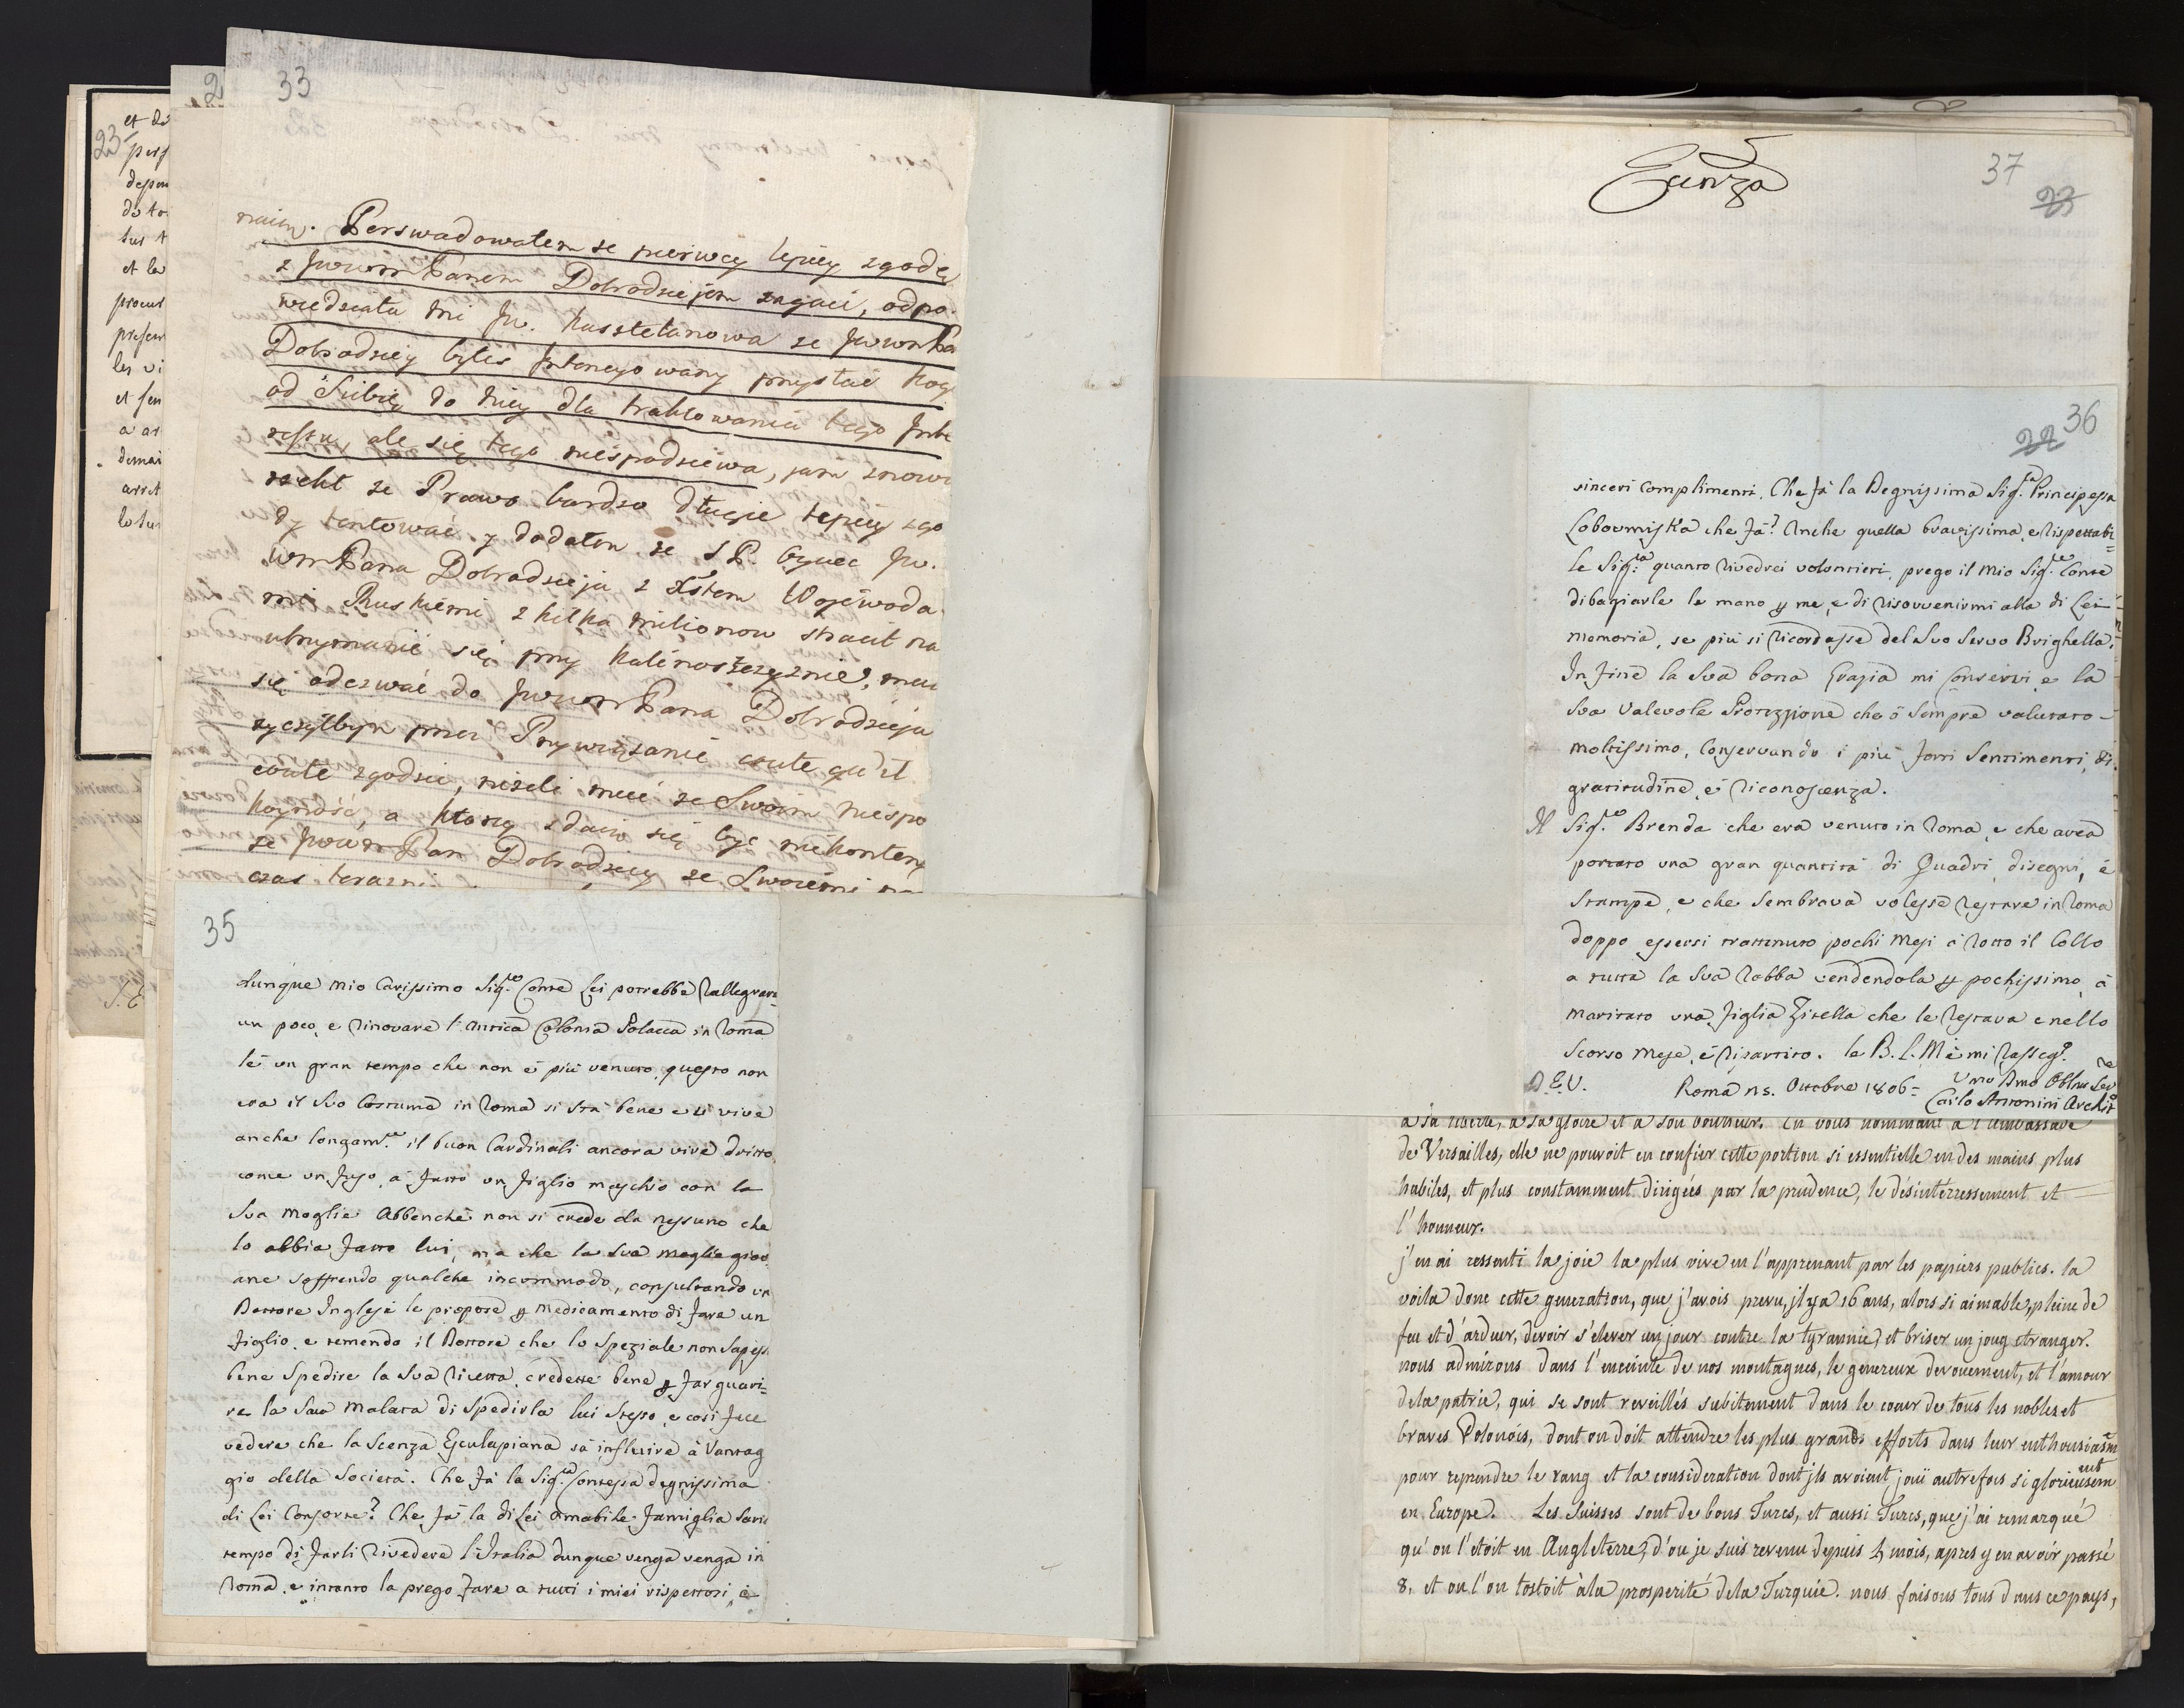 23
et de
perf
depen
de to
sur t
et la
procur
presen
les vi
et sen
a ar
demai
arret
le sur
2
33
Perswadowałem ze pierwey lepiey zgodę
z Jwwm Panem Dobrodziejem zagaić, odpo-
wiedziała mi Jw. Kasztelanowa ze Jwwm Pa
Dobrodziey byłeś Intencyowany przysłać kog
od Siebię do niey dla traktowania tego Inte
ressu, ale się tego niespodziewa, jam znowu
rzekł ze Prawo bardzo długie lepiey zgo
dy tentować, y dodałem ze S P. Oyciec Jw.
wm Pana Dobrodzieja z Xstem Wojewoda
mi Ruskiemi z kilka milionow stracił na
utrzymanie się przy Kalinoszczyznie,
się odezwać do Jwwm Pana Dobrodzieja
zyczyłbym przez Przywiązanie coute qu'il
coute zgodzić, niżeli mieć ze Swoim niespo
koyność, a ktorey zdaie się być niekonten
ze Jwwm Pan Dobrodziey ze Swoiemi
czas terazni
35
dunque mio Carissimo Sig.re Conte Lei potrebbe rallegrare
un poco, e rinovare l'Antica Colonia Polacca in Roma
lè un gran tempo che non è più venuto, questo non
era il Suo Costume in Roma si stà bene e si vive
anche longam.te il buon Cardinali ancora vive dritto
come un fuso, à fatto un figlio maschio con la
Sua moglie Abbenche non si crede da nessuno che
lo abbia fatto lui, ma che la Sua moglie giov
ane soffrendo qualche incommodo, consultando un
Dottore Inglese le propose p medicamento di fare un
figlio, e temendo il Dottore che lo Speziale non Sapess
bene Spedire la Sua ricetta, credette bene p far guari-
re la Sua malata di Spedirla lui Stesso, e così fece
vedere che la Scenza Esculapiana sà influire à Vantag
gio della Società. Che fà la Sig.ra Contessa degnissima
di Lei Consorte? Che fà la di Lei Amabile famiglia Saria
tempo di farli rivedere l'Italia dunque venga venga in
Roma, e intanto la prego fare a tutti i miei rispettosi, e
36
22
sinceri Complimenti. Che fà la Degnissima Sig.ra Principessa
Loboumiska che fà? Anche quella bravissima, e rispettabi=
le Sig.ra quanto rivedrei volontieri, prego il mio Sig.re Conte
di bagiarle le mano p me, e di risovvenirmi alla di Lei
memoria, se più si ricordasse del Suo Servo Brighella.
In fine la Sua bona Grazia mi Conservi e la
Sua Valevole Protezzione che ò Sempre valutato
moltissimo, Conservando i più forti Sentimenti, di
gratitudine, e riconoscenza.
Il Sig.re Brenda che era venuto in Roma, e che avea
portato una gran quantità di Quadri, disegni, e
Stampe, e che Sembrava volesse restare in Roma
doppo essersi trattenuto pochi Mesi à rotto il Collo
a tutta la Sua robba vendendola p pochissimo, à
maritato una figlia Zitella che le restava e nello
Scorso Mese, è ripartito. le B. l. M e mi rasseg.o
D. E. V. Roma ns. Ottobre 1806= Umo Dmo Obbmo Ser re
Carlo Antonini Archit.o
Ganza
37
23
à sa liberté, à sa gloire et à son bonheur. En vous nommant à l'ambassade
de Versailles, elle ne pouvoit en confier cette portion si essentielle en des mains plus
habiles, et plus constamment dirigées par la prudence, le désintérressement et
l'honneur.
j'en ai ressenti la joie la plus vive en l'apprenant par les papiers publics. la
voila donc cette generation, que j'avois prevu, il y a 16 ans, alors si aimable, pleine de
feu et d'ardeur, devoir s'elever un jour contre la tyrannie, et briser un joug etranger.
nous admirons dans l'enceinte de nos montagnes, le genereux devouement, et l'amour
dela patrie, qui se sont reveillés subitement dans le coeur de tous les nobles et
braves Polonois, dont on doit attendre les plus grands efforts dans leur enthousiasm
pour reprendre le rang et la consideration dont ils avoient joui autrefois si glorieusem ent
en Europe. Les Suisses sont de bons Turcs, et aussi Turcs, que j'ai remarqué
qu'on l'etoit en Angleterre, d'ou je suis revenu depuis 4 mois, apres y en avoir passé
8, et ou l'on tostoit à la prosperité dela Turquie. nous faisons tous dans ce pays,